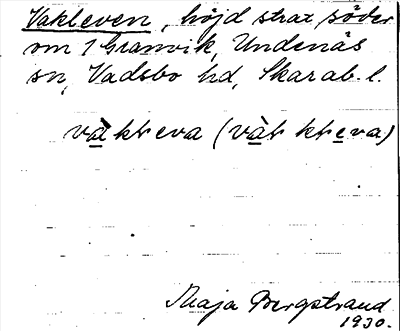 Vakleven, höjd strax söder
om 1 Granvik, Undenäs
sn, Vadsbo hd, Skarab. l.
vàkteva (vàt kteva)
Maja Bergstrand
1930.